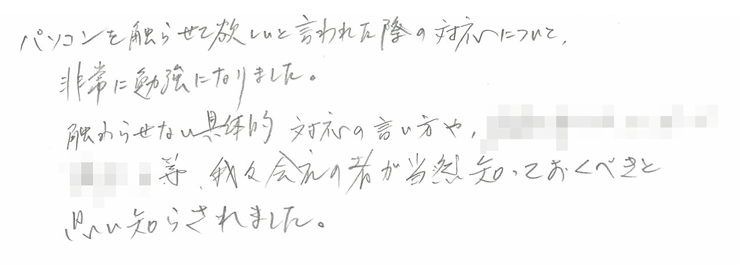 パソコンを触らせて欲しいと言われた際の対応について、
非常に勉強になりました。
触わらせない具体的対応の言い方や、
等、我々会社の者が当然知っておくべきと
思い知らされました。